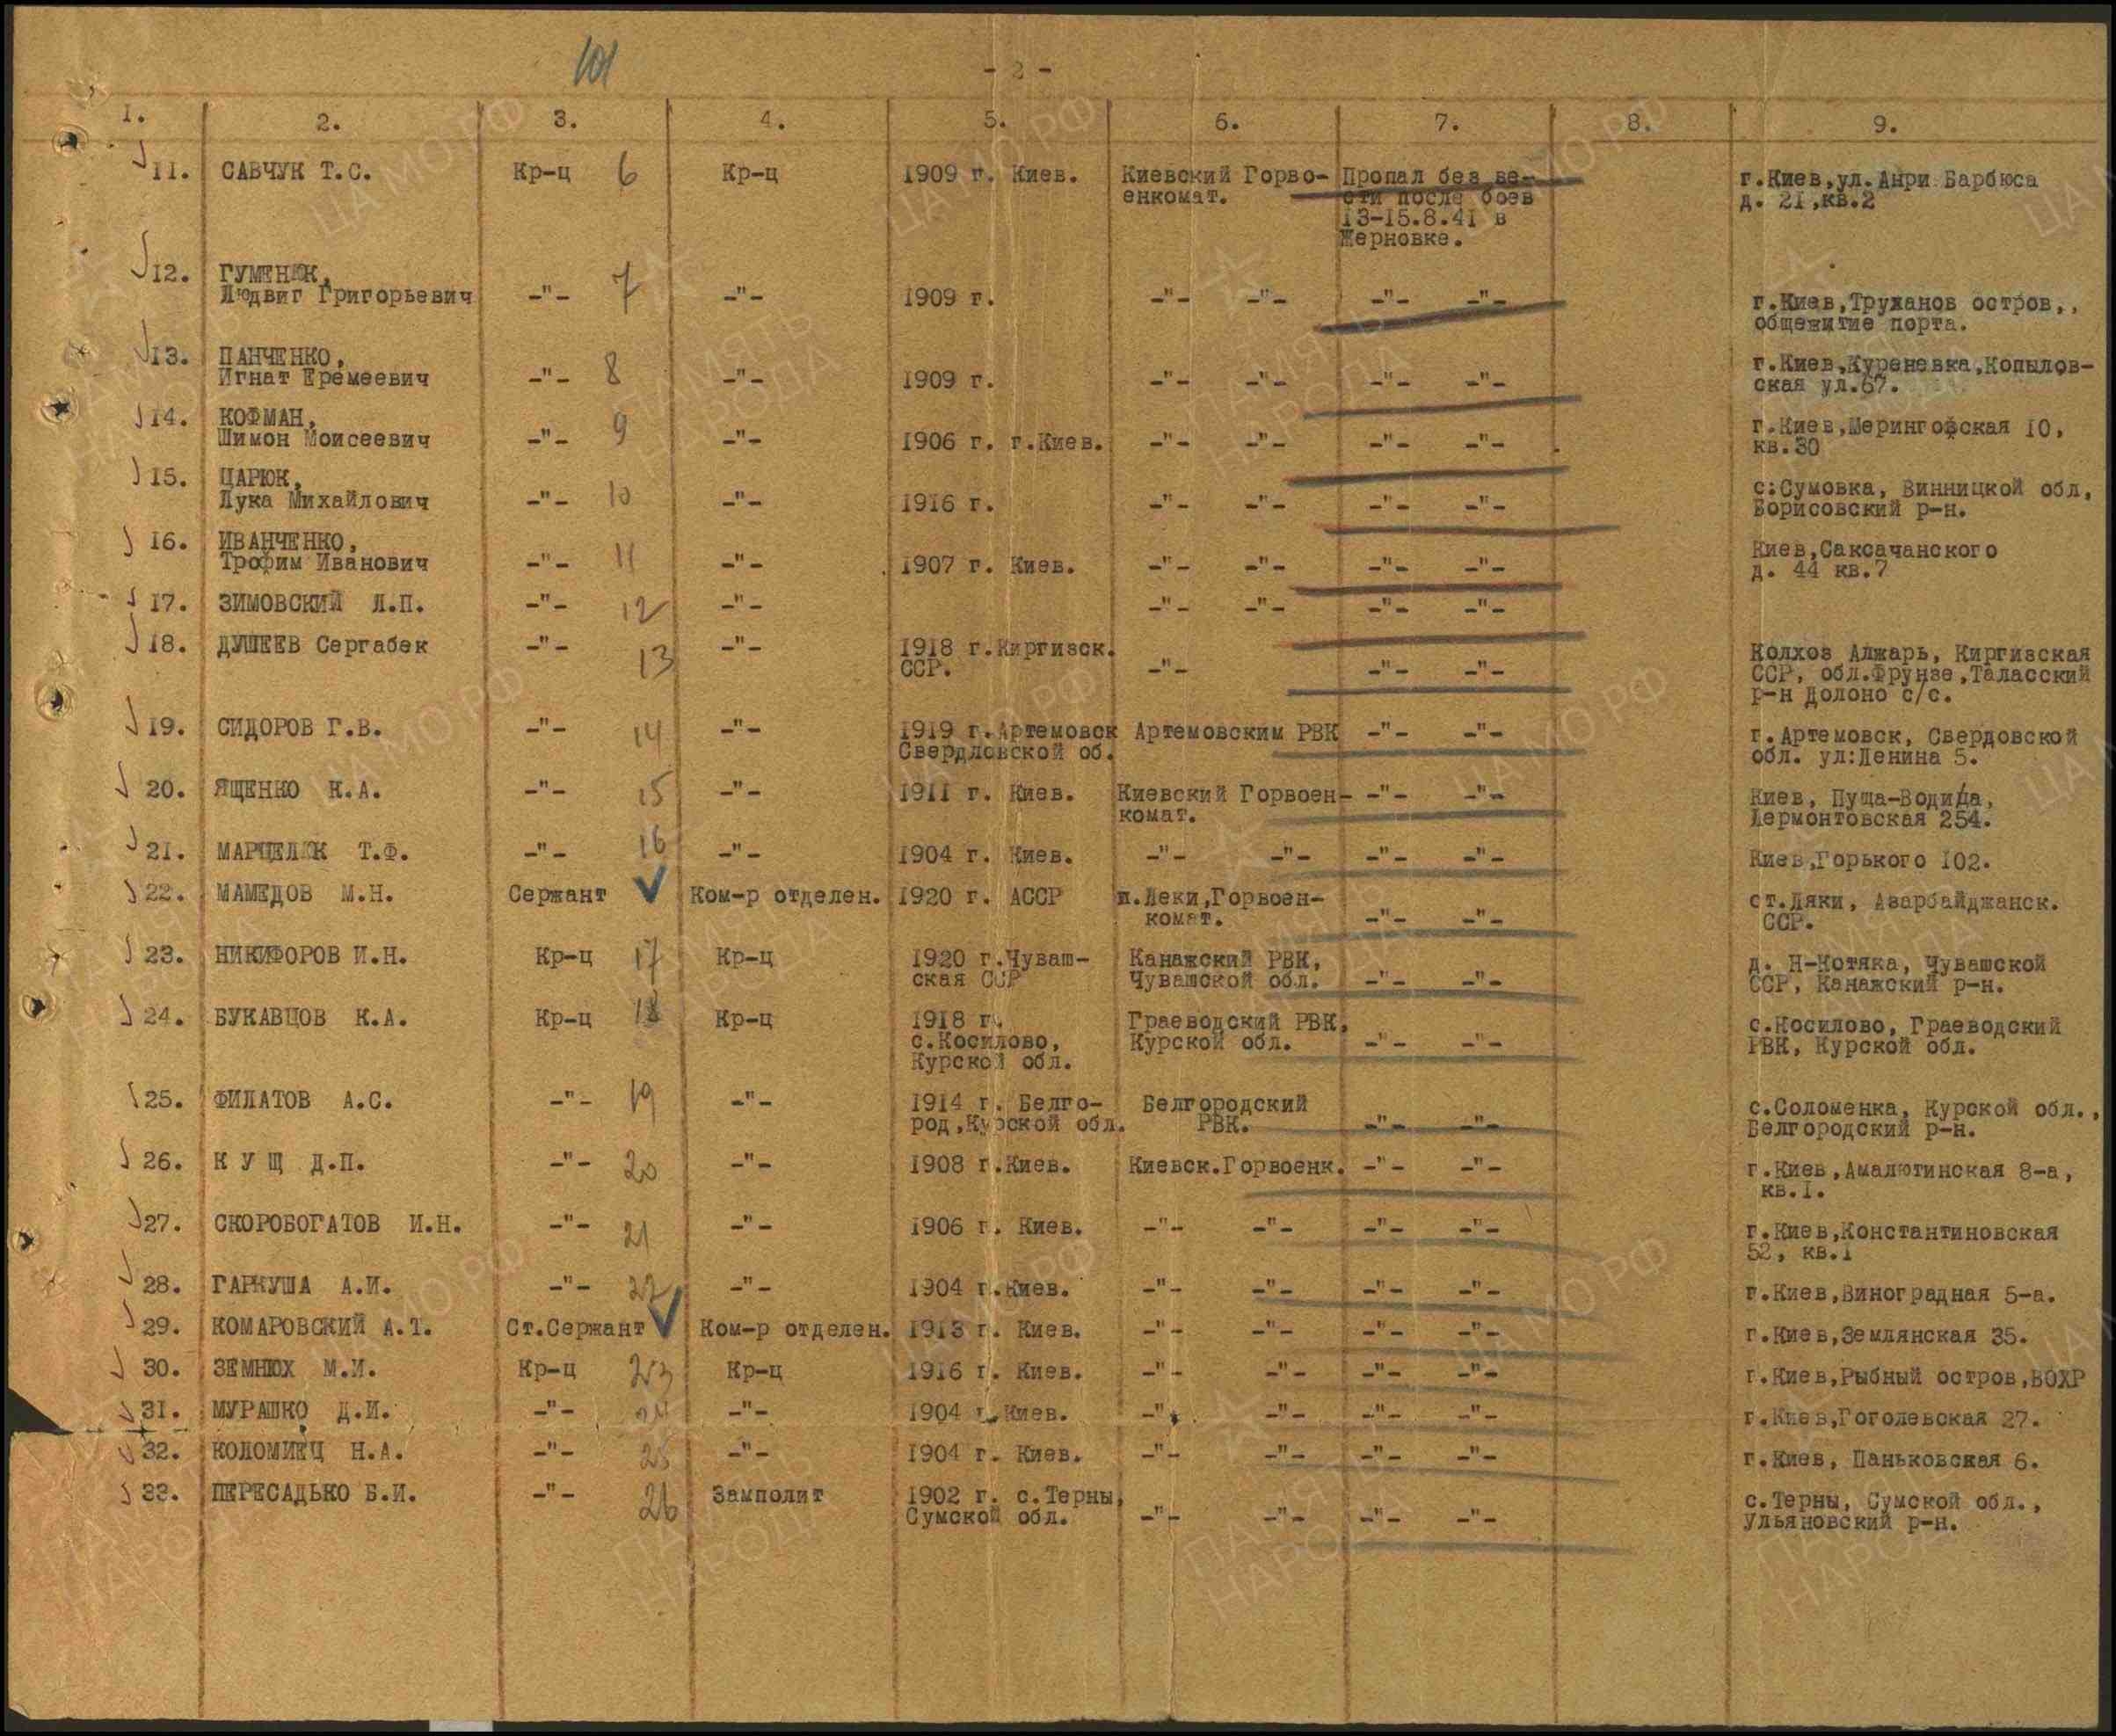 101
- 2 -
1. 2. 3. 4. 5. 6. 7. 8. 9.
11. САВЧУК Т.С. Кр-ц 6 Кр-ц 1909 г. Киев. Киевский Горво- Пропал без ве- г.Киев,ул.Анри Барбюса
енкомат. сти после боев д. 21,кв.2
13-15.8.41 в
Жерновке.
12. ГУМЕНЮК,
Людвиг Григорьевич -"- 7 -"- 1909 г. -"- -"- -"- -"- г.Киев,Труханов остров,,
общежитие порта.
13. ПАНЧЕНКО, г.Киев,Куреневка,Копылов-
Игнат Еремеевич -"- 8 -"- 1909 г. -"- -"- -"- -"- ская ул.67.
14. КОФМАН, г.Киев,Мерингофская 10,
Шимон Моисеевич -"- 9 -"- 1906 г. г.Киев. -"- -"- -"- -"- кв.30
15. ЦАРЮК, с:Сумовка, Винницкой обл,
Лука Михайлович -"- 10 -"- 1916 г. -"- -"- -"- -"- Борисовский р-н.
16. ИВАНЧЕНКО, Киев,Саксачанского
Трофим Иванович -"- 11 -"- 1907 г. Киев. -"- -"- -"- -"- д. 44 кв.7
17. ЗИМОВСКИЙ Л.П. -"- 12 -"- -"- -"- -"- -"-
18. ДУШЕЕВ Сергабек -"- 13 -"- 1918 г.Киргизск. Колхоз Алжарь, Киргизская
ССР. -"- -"- -"- ССР, обл.Фрунзе,Таласский
р-н Долоно с/с.
19. СИДОРОВ Г.В. -"- 14 -"- 1919 г.Артемовск Артемовским РВК -"- -"- г.Артемовск, Свердовской
Свердловской об. обл. ул:Ленина 5.
20. ЯЩЕНКО К.А. -"- 15 -"- 1911 г. Киев. Киевский Горвоен- -"- -"- Киев, Пуща-Водица,
комат. Лермонтовская 254.
21. МАРЦЕЛЮК Т.Ф. -"- 16 -"- 1904 г. Киев. -"- -"- -"- -"- Киев,Горького 102.
22. МАМЕДОВ М.Н. Сержант Ком-р отделен. 1920 г. АССР п.Леки,Горвоен- ст.Ляки, Азарбайджанск.
комат. -"- -"- ССР.
23. НИКИФОРОВ И.Н. Кр-ц 17 Кр-ц 1920 г.Чуваш- Канажский РВК, д. Н-Котяка, Чувашской
ская ССР Чувашской обл. -"- -"- ССР, Канажский р-н.
24. БУКАВЦОВ К.А. Кр-ц 18 Кр-ц 1918 г. Граеводский РВК, с.Косилово, Граеводский
с.Косилово, Курской обл. -"- -"- РВК, Курской обл.
Курской обл.
25. ФИЛАТОВ А.С. -"- 19 -"- 1914 г. Белго- Белгородский с.Соломенка, Курской обл.,
род,Курской обл. РВК. -"- -"- Белгородский р-н.
26. К У Щ Д.П. -"- 20 -"- 1908 г.Киев. Киевск.Горвоенк. -"- -"- г.Киев,Амалютинская 8-а,
кв.1.
27. СКОРОБОГАТОВ И.Н. -"- 21 -"- 1906 г. Киев. -"- -"- -"- -"- г.Киев,Константиновская
52, кв.1
28. ГАРКУША А.И. -"- 22 -"- 1904 г.Киев. -"- -"- -"- -"- г.Киев,Виноградная 5-а.
29. КОМАРОВСКИЙ А.Т. Ст.Сержант Ком-р отделен. 1913 г. Киев. -"- -"- -"- -"- г.Киев,Землянская 35.
30. ЗЕМНЮХ М.И. Кр-ц 23 Кр-ц 1916 г. Киев. -"- -"- -"- -"- г.Киев,Рыбный остров,ВОХР
31. МУРАШКО Д.И. -"- 24 -"- 1904 г.Киев. -"- -"- -"- -"- г.Киев,Гоголевская 27.
32. КОЛОМИЕЦ Н.А. -"- 25 -"- 1904 г. Киев. -"- -"- -"- -"- г.Киев, Паньковская 6.
33. ПЕРЕСАДЬКО Б.И. -"- 26 Замполит 1902 г. с.Терны, с.Терны, Сумской обл.,
Сумской обл. -"- -"- -"- -"- Ульяновский р-н.